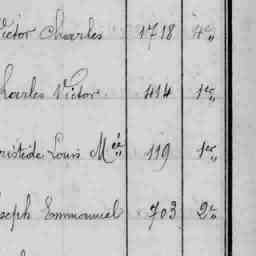 Victor Charles 1718 4e „
Charles Victor. 414 1er „
Aristide Louis Mée 119 1er „
Joseph Emmanuel 703 2e „